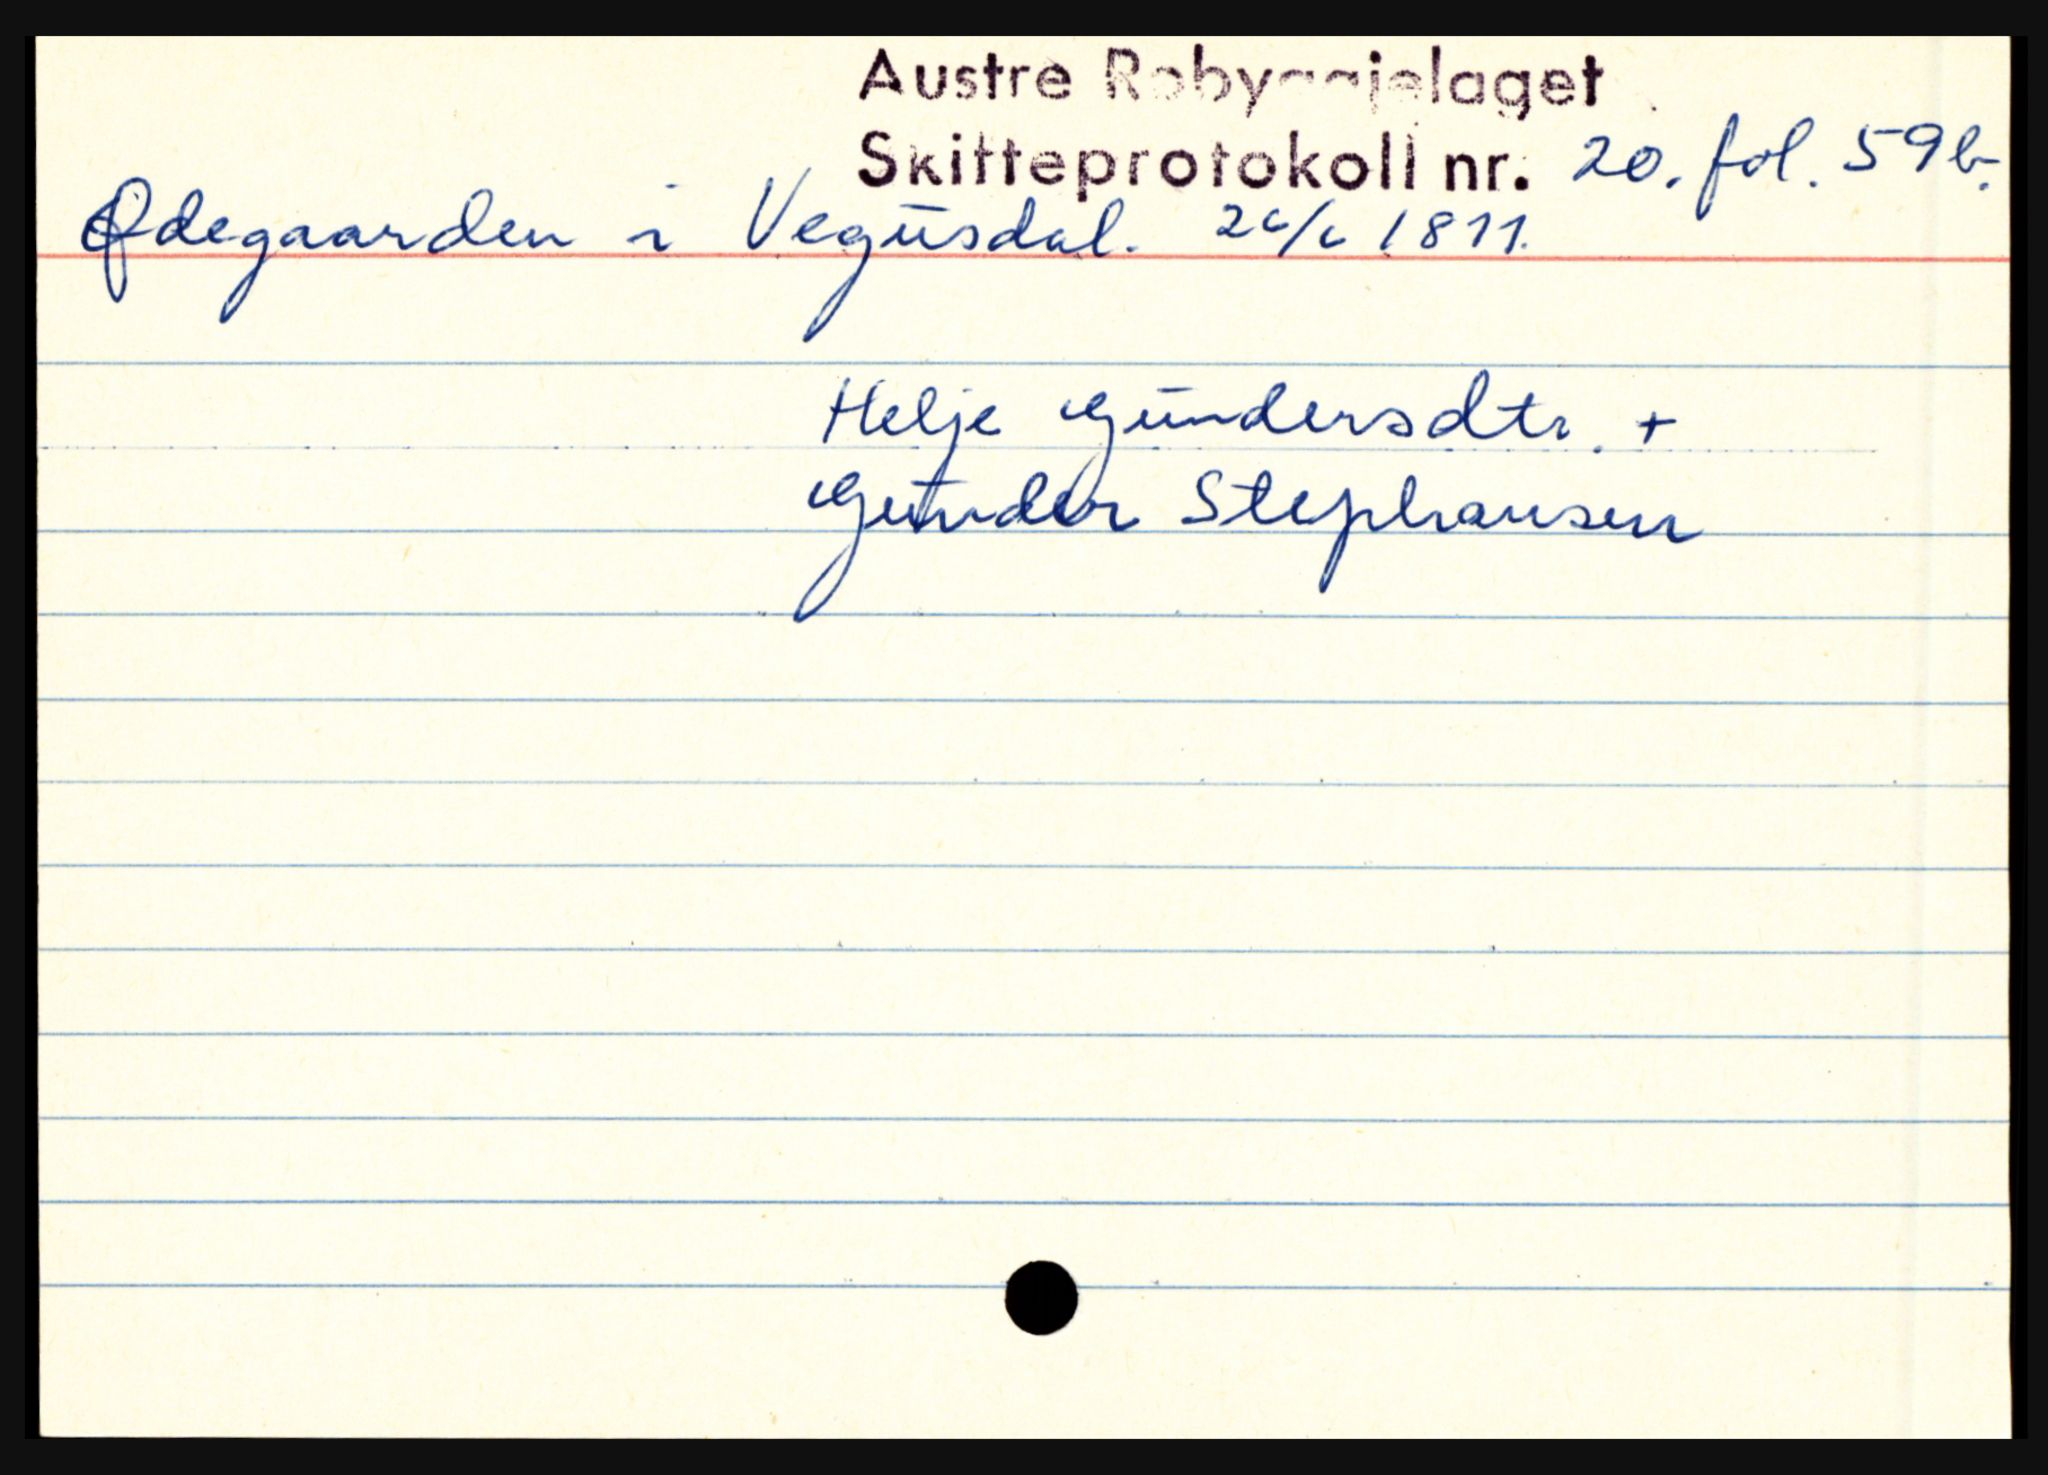 Austre Robyggjelaget
Skifteprotokoll nr. 20. fol. 59b.
Ødegaarden i Vegusdal. 26/6 1811.
Helje Gundersdtr. +
Gunder Stephansen